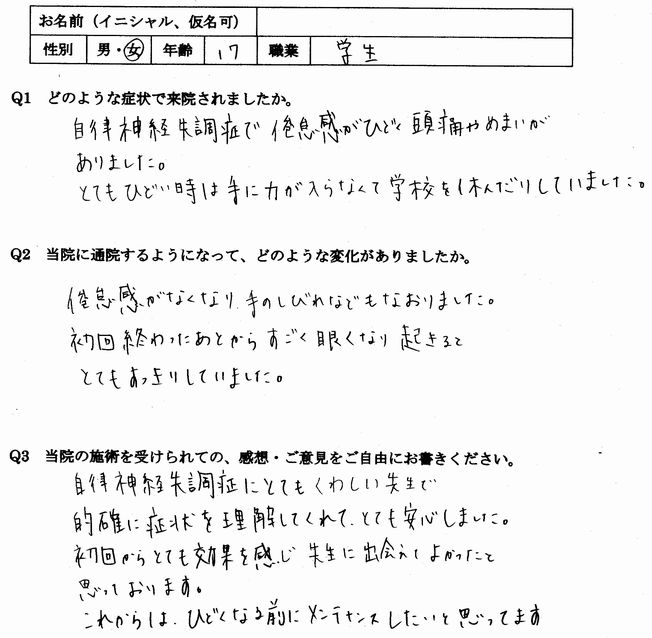 お名前（イニシャル、仮名可）
性別 男・女 年齢 17 職業 学生
Q1 どのような症状で来院されましたか。
自律神経失調症で倦怠感がひどく頭痛やめまいが
ありました。
とてもひどい時は手に力が入らなくて学校を休んだりしていました。
Q2 当院に通院するようになって、どのような変化がありましたか。
倦怠感がなくなり、手のしびれなどもなおりました。
初回終わったあとからすごく眠くなり起きると
とてもすっきりしていました。
Q3 当院の施術を受けられての、感想・ご意見をご自由にお書きください。
自律神経失調症にとてもくわしい先生で
的確に症状を理解してくれて、とても安心しました。
初回からとても効果を感じ先生に出会えてよかったと
思っております。
これからは、ひどくなる前にメンテナンスしたいと思ってます